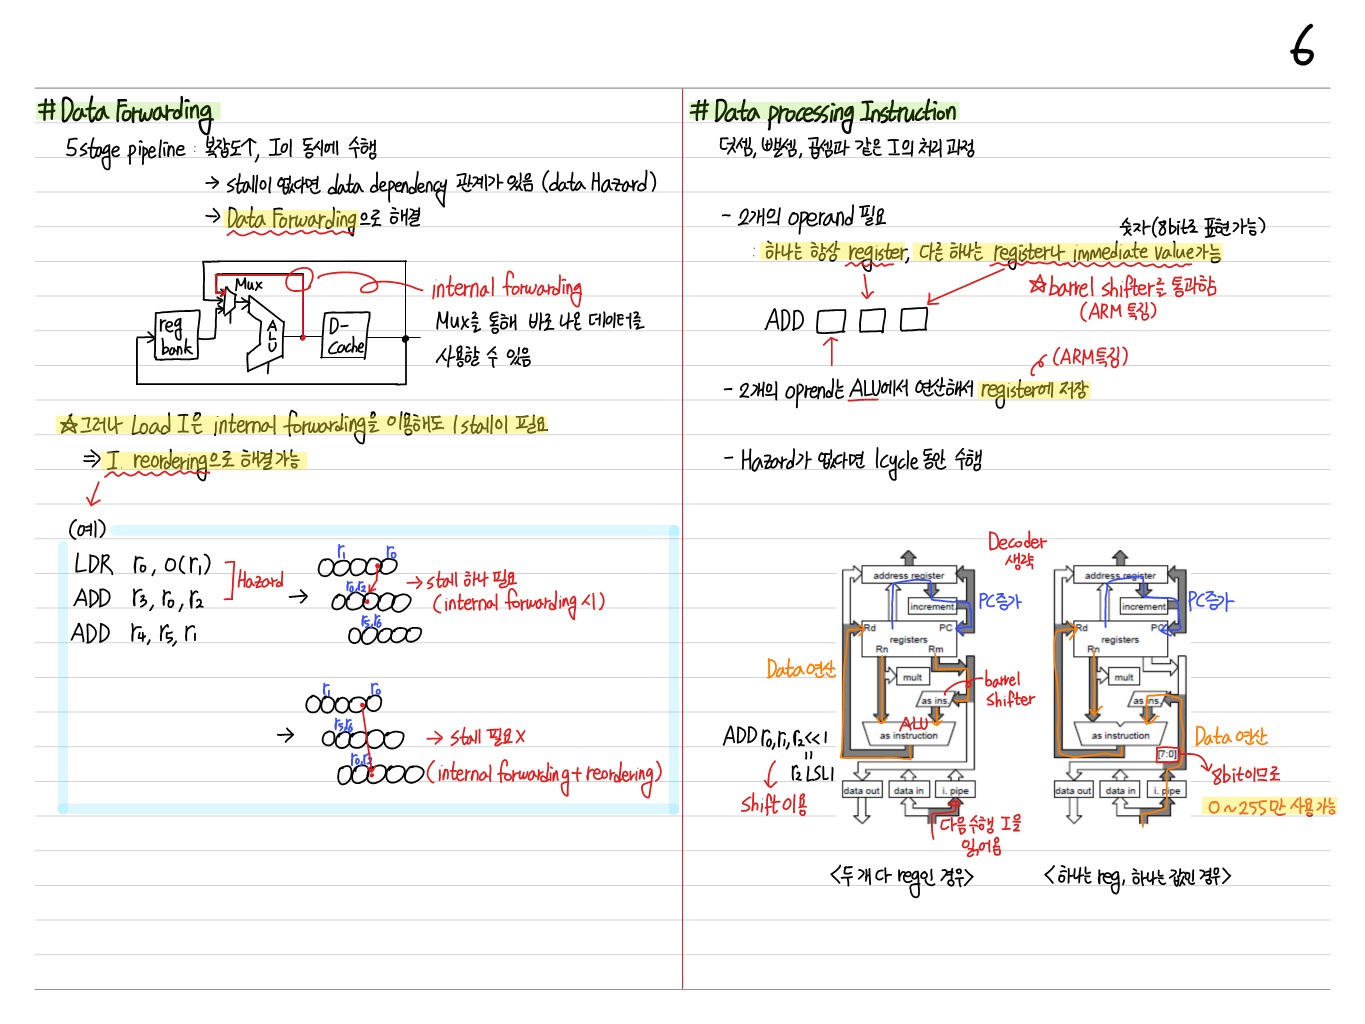 6
# Data Forwarding
5 stage pipeline : 복잡도↑, I이 동시에 수행
→ stall이 없다면 data dependency 관계가 있음 (data Hazard)
→ Data Forwarding으로 해결
Mux
reg bank
ALU
D-Cache
internal forwarding
Mux를 통해 바로 나온 데이터를
사용할 수 있음
☆그러나 Load I은 internal forwarding을 이용해도 1 stall이 필요
⇒ I. reordering으로 해결가능
(예)
LDR r0, 0(r1)
ADD r3, r0, r2
ADD r4, r5, r1
Hazard
→
r1 r0
r0, r2
r5, r6
→ stall 하나 필요
(internal forwarding 시)
→
r1 r0
r5, r6
r0, r2
→ stall 필요 X
(internal forwarding + reordering)
# Data processing Instruction
덧셈, 뺄셈, 곱셈과 같은 I의 처리 과정
- 2개의 operand 필요
숫자(8bit로 표현가능)
: 하나는 항상 register, 다른 하나는 register나 immediate value가능
☆barrel shifter를 통과함
(ARM 특징)
ADD
(ARM특징)
- 2개의 oprend는 ALU에서 연산해서 register에 저장
- Hazard가 없다면 1cycle 동안 수행
Decoder
생략
address register
increment
PC증가
Rd PC
registers
Rn Rm
Data 연산
mult
as ins.
barrel
shifter
ALU
as instruction
ADD r0, r1, r2<<1
=
r2 LSL1
shift 이용
data out
data in
i. pipe
다음수행 I을
읽어옴
<두 개 다 reg인 경우>
address register
increment
PC증가
Rd PC
registers
Rn
mult
as ins.
as instruction
Data 연산
[7:0]
8bit이므로
0~255만 사용가능
data out
data in
i. pipe
<하나는 reg, 하나는 값인 경우>